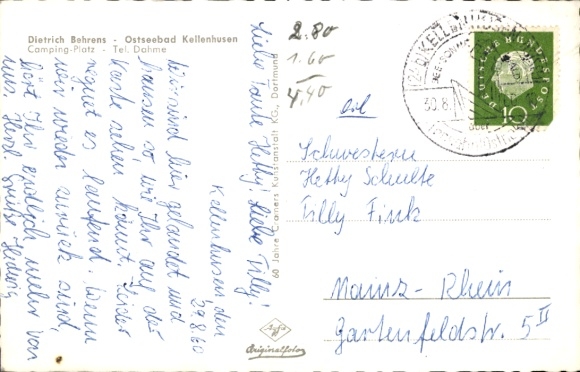 Dietrich Behrens - Ostseebad Kellenhusen
Camping-Platz - Tel. Dahme
2.80
1.60
4,40
Kellenhusen den
29.8.60
Liebe Tante Hethy! Liebe Tilly!
Wir sind hier gelandet und
hausen so, wie Ihr auf der
Karte sehen könnt. Leider
regnet es laufend. Wenn
wir wieder zurück sind,
hört Ihr endlich mehr von
uns. Herzl. Grüße Hedwig
60 Jahre Cramers Kunstanstalt KG., Dortmund
Agfa
Originalfoto
KELLENHUSEN
30.8.
DEUTSCHE BUNDESPOST
10
Schwestern
Hethy Schulte
Tilly Fink
Mainz-Rhein
Gartenfeldstr. 5 II